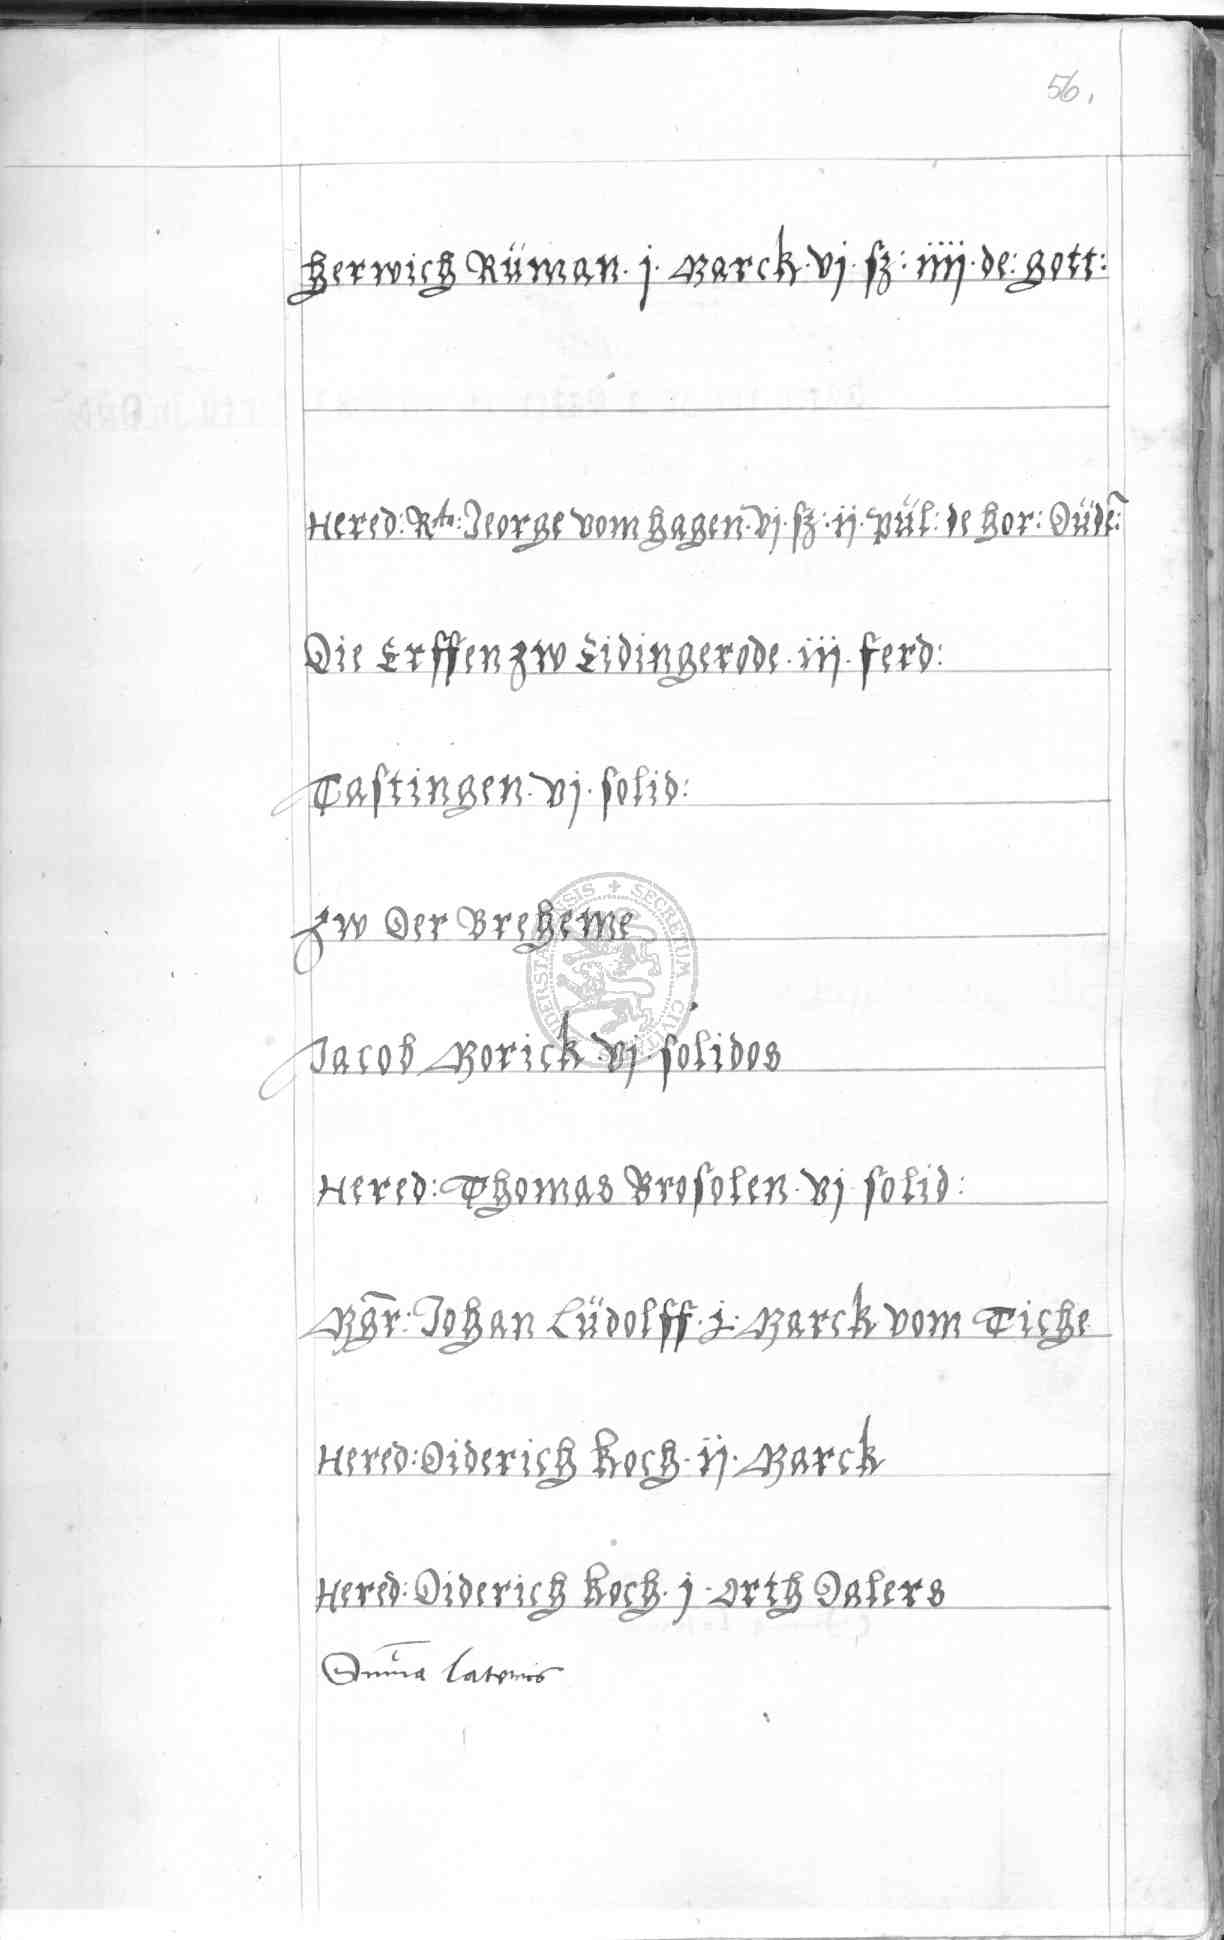 56.
Herwich Rüman · j · Marck · vj · sz: iiij · de: gott:
Hered: Rdo: Jeorge vom Hagen · vj · sz: ij · pül: de hor: Düdē:
Die Erffen zw Eidingerode · iij · ferd:
Tastingen · vj · solid:
Zw Der Breheme
Jacob Morick · vj · solidos
Hered: Thomas Brosolen · vj · solid:
Mgr̄: Johan Lüdolff · j · Marck vom Tiche
Hered: Diderich Koch · ij · Marck
Hered: Diderich Koch · j · Orth Dalers
Sum̄a lateris
SECRETUM